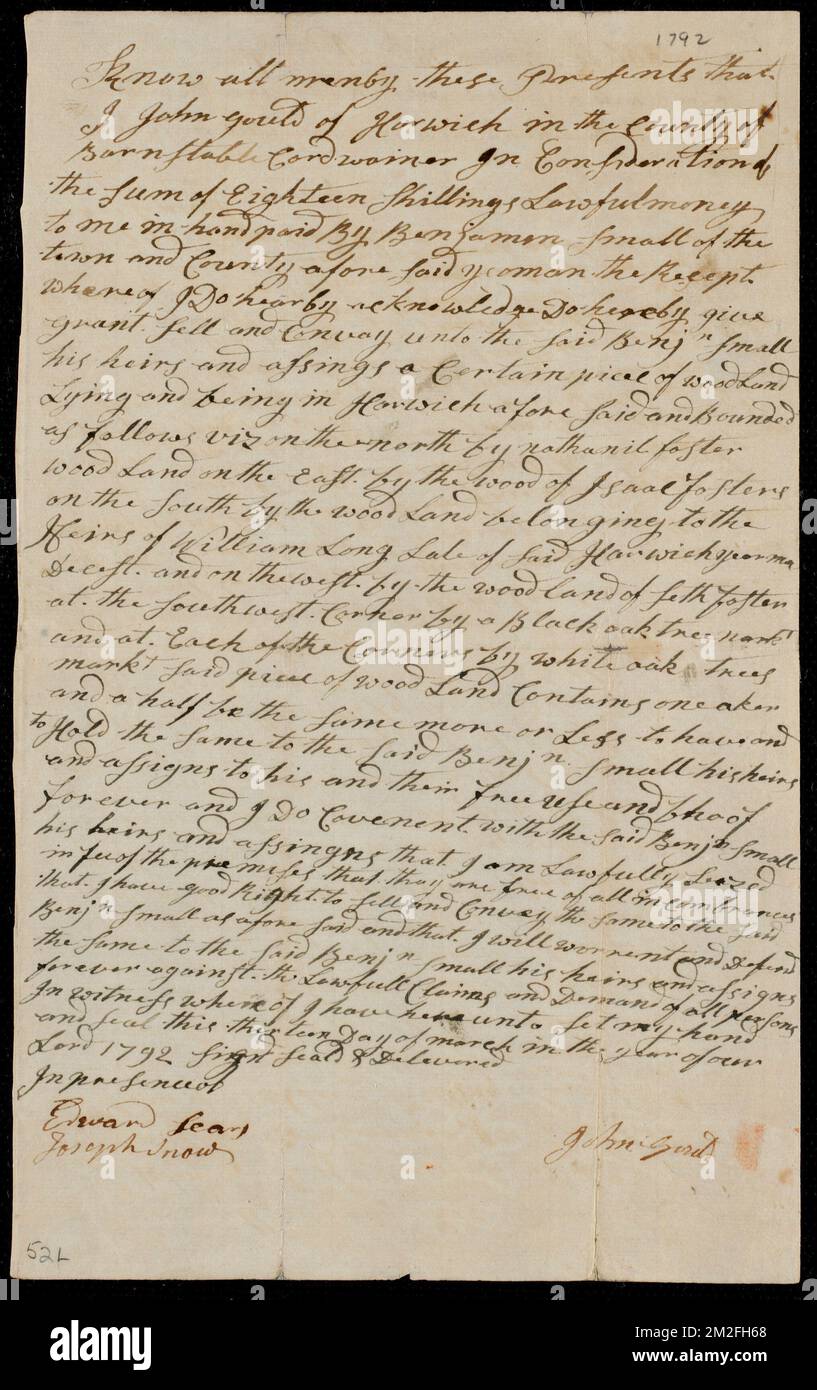 1792
Know all men by these Presents that
I John Gould of Harwich in the County of
Barnstable Cordwainer In Consideration of
the sum of Eighteen Shillings Lawful money
to me in hand paid By Benjamin Small of the
town and County afore said yeoman the Recept
where of I Do hearby acknowledge Do hereby give
grant Sell and Convay unto the said Benjn Small
his heirs and assings a Certain piece of wood Land
Lying and being in Harwich afore said and Bounded
as follows viz on the north by nathanil foster
wood Land on the East by the wood of Isaac fosters
on the South by the wood Land belonging to the
Heirs of William Long Late of said Harwich
Decest and on the west by the wood land of Seth foster
at the Southwest Corner by a Black oak tree markt
and at Each of the Corners by white oak trees
markt said piece of wood Land Contains one aker
and a half be the same more or Less to have and
to Hold the same to the said Benjn Small his heirs
and assigns to his and their free use and
forever and I Do Covenent with the said Benjn Small
his heirs and assingns that I am Lawfully Seized
in fee of the premises that they are free of all incombrances
that I have good Right to sell and Convey the same to the said
Benjn Small as afore said and that I will worrent and Defend
the same to the said Benjn Small his heirs and assigns
forever against the Lawfull Claims and Demand of all persons
In witness where of I have here unto set my hand
and seal this thirteen Day of march in the year of our
Lord 1792 Signt Seald & Delivered
In presence of
Edward Sears
Joseph Snow
John Goul
52L
alamy
Image ID: 2M2FH68
www.alamy.com